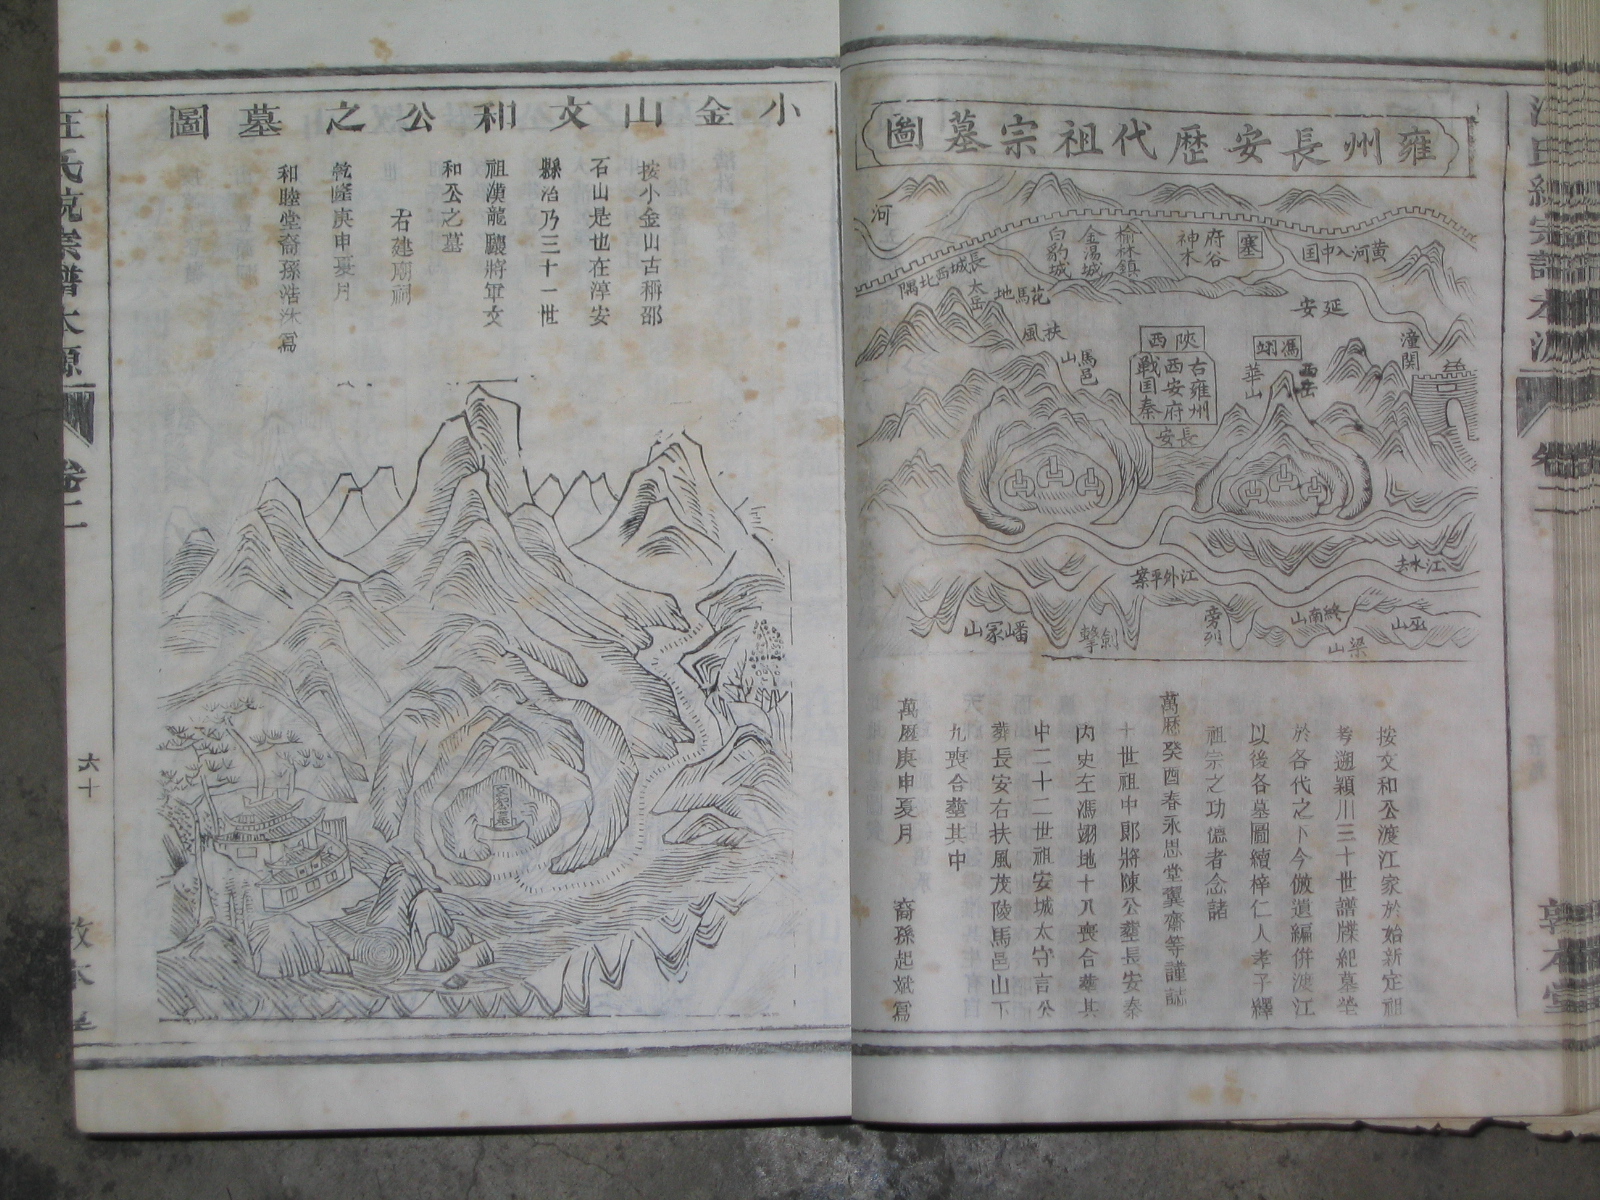 雍州長安歷代祖宗墓圖
河
白豹城
金湯城
榆林鎮
神木
府谷
塞
黃河入中国
長城西北隅
太岳
花馬地
延安
扶風
馬邑山
陝西
古雍州
西安府
戰国秦
長安
馮翊
華山
西岳
潼関
江水去
江外平案
嶓冢山
劍擎
終南山
巫山
梁山
按文和公渡江家於始新定祖
考遡穎川三十世譜牒紀墓塋
於各代之下今倣遺編併渡江
以後各墓圖續梓仁人孝子繹
祖宗之功德者念諸
萬歷癸酉春永思堂翼齋等謹誌
十世祖中郎將陳公塟長安秦
內史左馮翊地十八喪合塟其
中二十二世祖安城太守言公
葬長安右扶風茂陵馬邑山下
九喪合塟其中
萬歷庚申夏月 裔孫起斌寫
小金山文和公之墓圖
按小金山古稱邵
石山是也在淳安
縣治乃三十一世
祖漢龍驤將軍文
和公之墓
右建廟祠
乾隆庚申夏月
和睦堂裔孫浩沐寫
文和公墓
汪氏統宗譜本源
卷二
六十
敦本堂